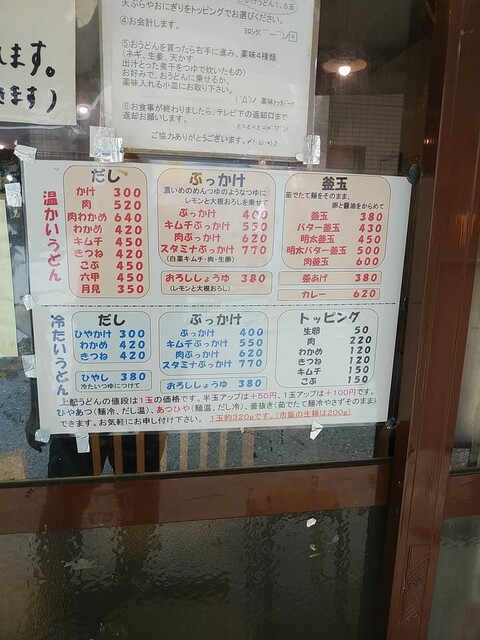 れます。
きます)
かけうどん1、5玉
天ぷらやおにぎりをトッピングでお選びください。
④お会計します。
⑤おうどんを貰ったら右手に進み、薬味4種類
(ネギ、生姜、天かす
出汁とった煮干をつゆで炊いたもの)
お好みで、おうどんに乗せるか、
薬味入れる小皿にお取り下さい。
⑥お食事が終わりましたら、テレビ下の返却口まで
返却お願いします。
ご協力ありがとうございます。
温かいうどん
だし
かけ 300
肉 520
肉わかめ 640
わかめ 420
キムチ 450
きつね 420
こぶ 450
六甲 450
月見 350
ぶっかけ
濃いめのめんつゆのようなつゆに
レモンと大根おろしを乗せて
ぶっかけ 400
キムチぶっかけ 550
肉ぶっかけ 620
スタミナぶっかけ 770
(白菜キムチ・肉・生卵)
おろししょうゆ 380
(レモンと大根おろし)
釜玉
茹でたて麺をそのまま、
卵と醤油をからめて
釜玉 380
バター釜玉 430
明太釜玉 450
明太バター釜玉 500
肉釜玉 600
釜あげ 380
カレー 620
冷たいうどん
だし
ひやかけ 300
わかめ 420
きつね 420
ひやし 380
冷たいつゆにつけて
ぶっかけ
ぶっかけ 400
キムチぶっかけ 550
肉ぶっかけ 620
スタミナぶっかけ 770
おろししょうゆ 380
トッピング
生卵 50
肉 220
わかめ 120
きつね 120
キムチ 150
こぶ 150
上記うどんの値段は1玉の価格です。半玉アップは+50円、1玉アップは+100円です。
ひやあつ(麺冷、だし温)、あつひや(麺温、だし冷)、釜抜き(茹でたて麺冷やさずそのまま)
できます。お気軽にお申し付け下さい。 1玉約320gです。(市販の生麺は200g)